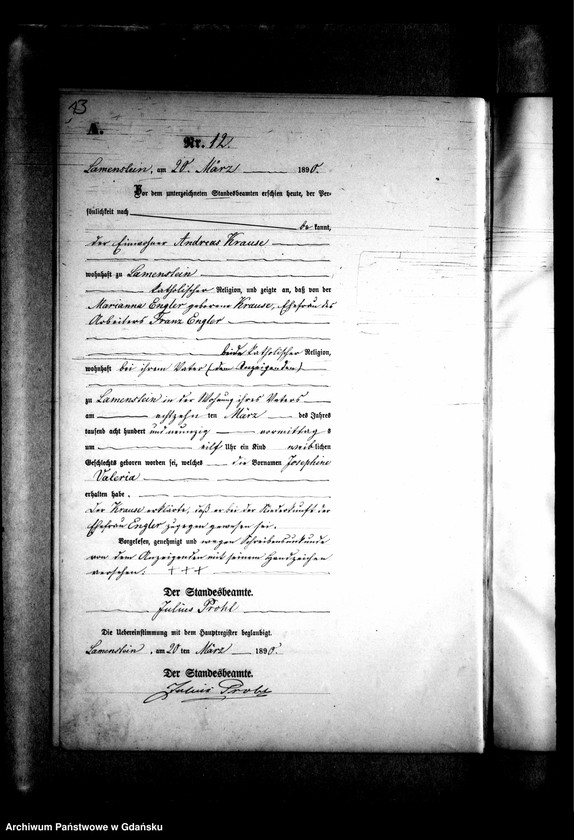 13
A.
Nr. 12.
Lamenstein, am 20. März 1890.
Vor dem unterzeichneten Standesbeamten erschien heute, der Per-
sönlichkeit nach
be kannt,
der Einwohner Andreas Krause
wohnhaft zu Lamenstein
katholischer Religion, und zeigte an, daß von der
Marianna Engler geborene Krause, Ehefrau des
Arbeiters Franz Engler
beide katholischer Religion,
wohnhaft bei ihrem Vater (dem Anzeigenden)
zu Lamenstein in der Wohnung ihres Vaters
am achtzehn ten März des Jahres
tausend acht hundert und neunzig vormittag s
um eilf Uhr ein Kind weiblichen
Geschlechts geboren worden sei, welches die Vornamen Josephine
Valeria
erhalten habe.
Der Krause erklärte, daß er bei der Niederkunft der
Ehefrau Engler zugegen gewesen sei.
Vorgelesen, genehmigt und wegen Schreibensunkunde
von dem Anzeigenden mit seinem Handzeichen
versehen. +++
Der Standesbeamte.
Julius Prohl
Die Uebereinstimmung mit dem Hauptregister beglaubigt.
Lamenstein, am 20 ten März 1890.
Der Standesbeamte.
Julius Prohl
Archiwum Państwowe w Gdańsku